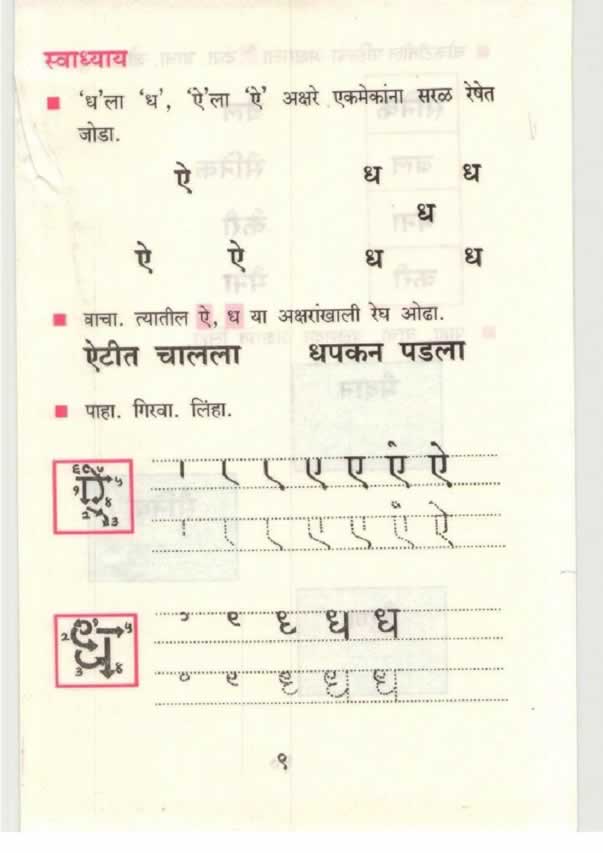 स्वाध्याय
'ध'ला 'ध', 'ऐ'ला 'ऐ' अक्षरे एकमेकांना सरळ रेषेत
जोडा.
ऐ ध ध
ध
ऐ ऐ ध ध
वाचा. त्यातील ऐ, ध या अक्षरांखाली रेघ ओढा.
ऐटीत चालला धपकन पडला
पाहा. गिरवा. लिंहा.
ऐ
ऐ
ध ध
ध
९